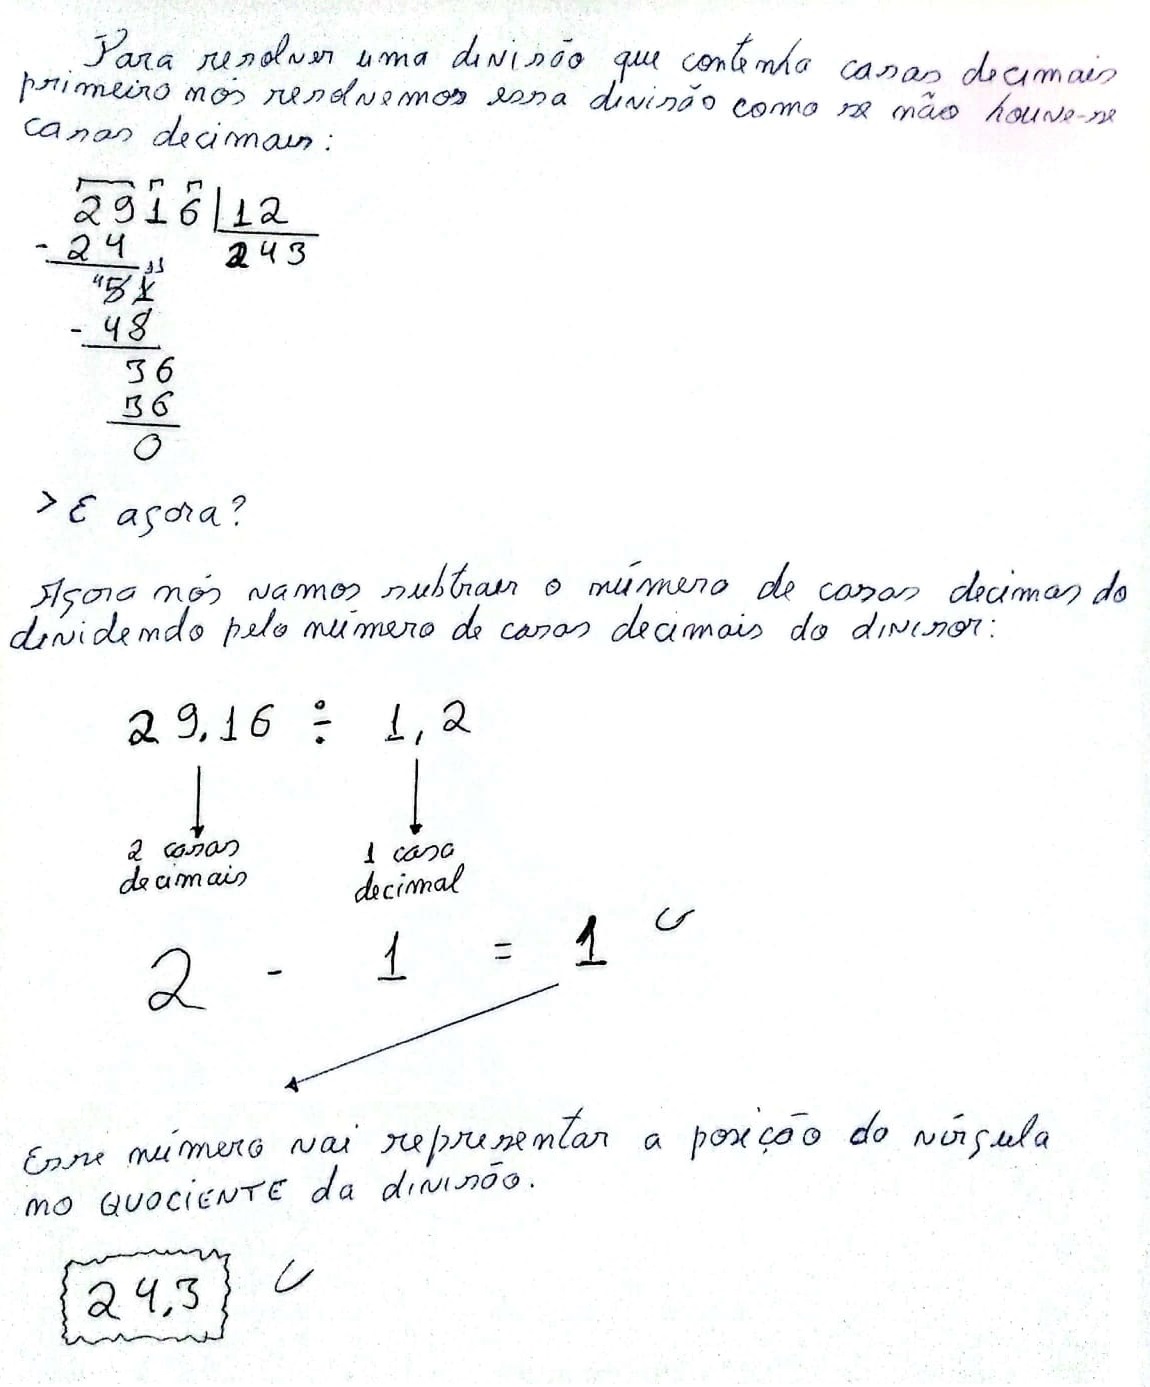 Para resolver uma divisão que contenha casas decimais
primeiro nós resolvemos essa divisão como se não houve-se
casas decimais:
2916 | 12
- 24 243
51
- 48
36
36
0
> E agora?
Agora nós vamos subtrair o número de casas decimas do
dividendo pelo número de casas decimais do divisor:
29,16 ÷ 1,2
2 casas 1 casa
decimais decimal
2 - 1 = 1
Esse número vai representar a posição do vírgula
no QUOCIENTE da divisão.
24,3